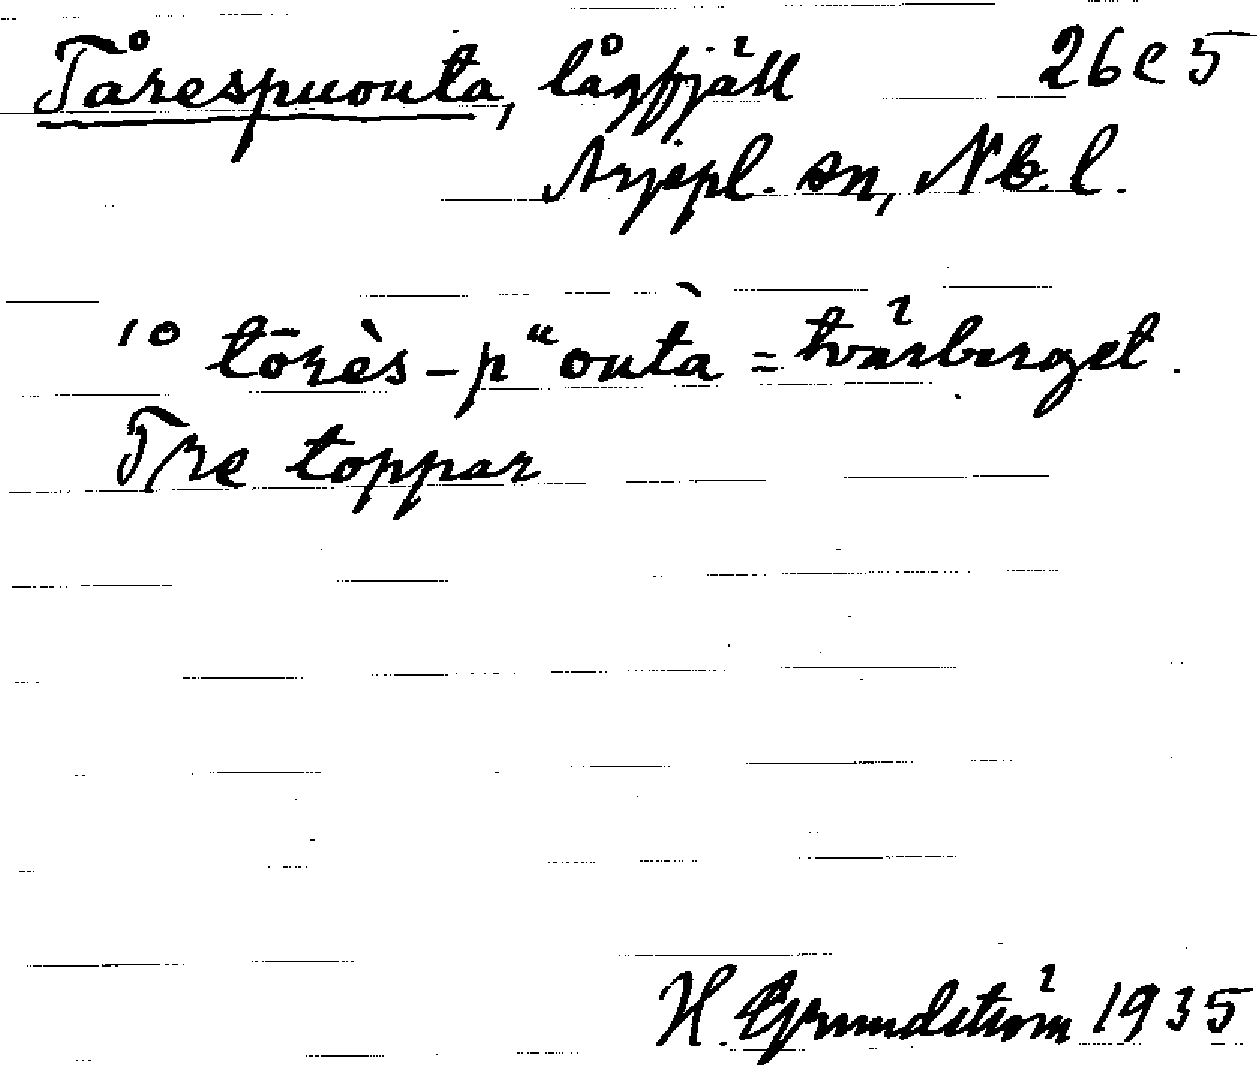 Tårespuouta, lågfjäll 26e5
Arjepl. sn, Nb. l.
10 tōrès-pᵘoutà = tvärberget.
Tre toppar
H. Grundström 1935